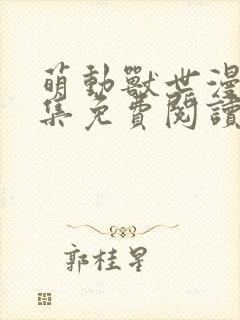 萌動獸世漫
集免費閱讀
郭桂星